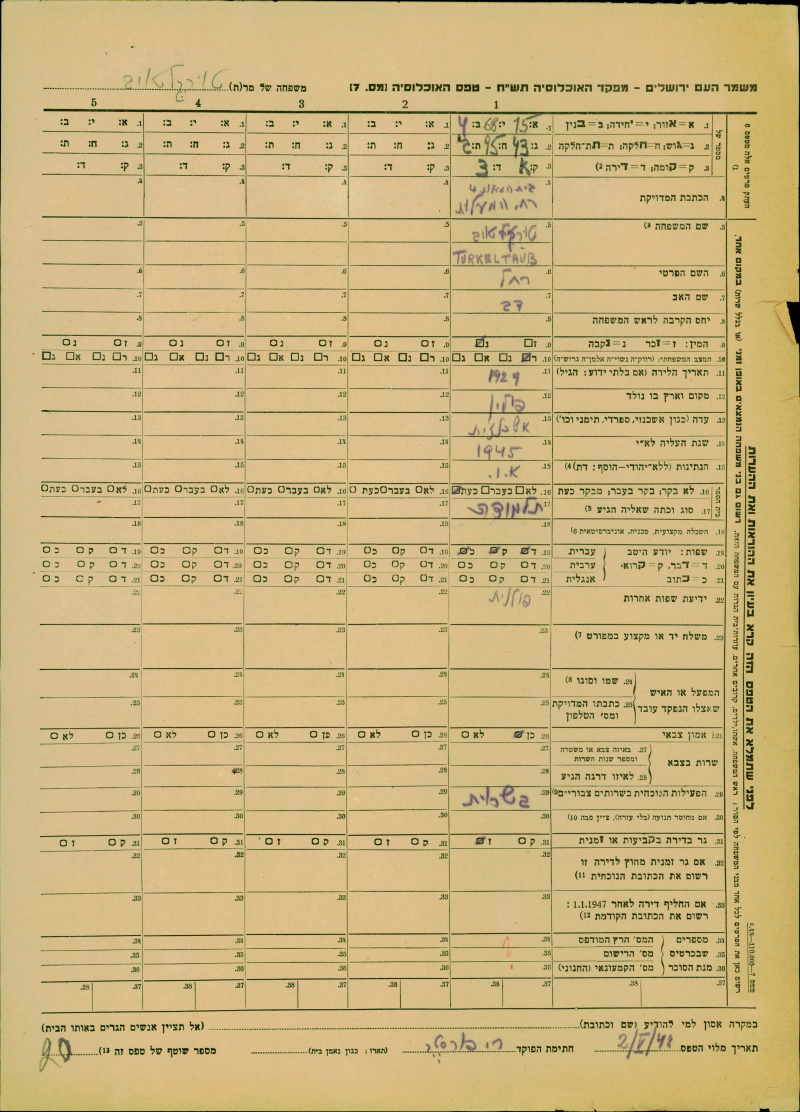 משמר העם ירושלים - מפקד האוכלוסיה תש״ח - טפס האוכלוסיה [מס. 7]
משפחה של מר(ת) טירקלטאוב
1 2 3 4 5
1. א=אזור; י=יחידה; ב=בנין א: 15 י: 68 ב: 4
2. ג=גוש; ח=חלקה; ת=תת-חלקה ג: 43 ח: 95 ת:
3. ק=קומה; ד=דירה 2) ק: א ד: 3
4. הכתבת המדויקת
רח. המעלות
5. שם המשפחה 3) טירקלטאוב
TURKELTAUB
6. השם הפרטי רחל
7. שם האב דב
8. יחס הקרבה לראש המשפחה
9. המין: ז=זכר נ=נקבה ז נ
10. המצב המשפחתי: (רווק״ה נשוי״ה אלמן״ה גרוש״ה) ר נ א ג
11. תאריך הלידה (אם בלתי ידוע: הגיל) 1929
12. מקום וארץ בו נולד פולין
13. עדה (כגון אשכנזי, ספרדי, תימני וכו׳) אשכנזית
14. שנת העליה לא״י 1945
15. הנתינות (ללא-יהודי-הוסף: דת) 4) א.י.
16. לא בקר; בקר בעבר; מבקר כעת לא בעבר כעת
17. סוג וכתה שאליה הגיע 5) תלמודית
18. השכלה מקצועית, טכנית, אוניברסיטאית 6)
19. שפות: יודע היטב עברית ד ק כ
20. ד=דבר, ק=קרוא, ערבית ד ק כ
21. כ=כתוב אנגלית ד ק כ
22. ידיעת שפות אחרות פולנית
23. משלח יד או מקצוע במפורט 7)
המפעל או האיש שאצלו הנפקד עובד
24. שמו וסוגו 8)
25. כתבתו המדויקת ומס׳ הטלפון
26. אמון צבאי כן לא
שרות בצבא
27. באיזה צבא או משטרה ומספר שנות השרות
28. לאיזו דרגה הגיע
29. הפעילות הנוכחית בשרותים צבוריים 9)
30. אם מחוסר תנועה (בלי עזרה), ציין סבה 10)
31. גר בדירה בקביעות או זמנית ק ז
32. אם גר זמנית מחוץ לדירה זו
רשום את הכתובת הנוכחית 11)
33. אם החליף דירה לאחר 1.1.1947:
רשום את הכתובת הקודמת 12)
34. מספרים המס׳ הרץ המודפס
35. שבכרטיס מס׳ הרישום
36. מנת הסוכר מס׳ הקמעונאי (החנוני)
37. 38.
במקרה אסון למי להודיע (שם וכתובת) (אל תציין אנשים הגרים באותו הבית)
תאריך מלוי הטפס 2/V/48 חתימת הפוקד (תארו: כגון נאמן בית) מספר שוטף של טפס זה 13) 20
לפני שתמלא את הטפס הזה קרא בעיון את ההוראות ואת ההערות